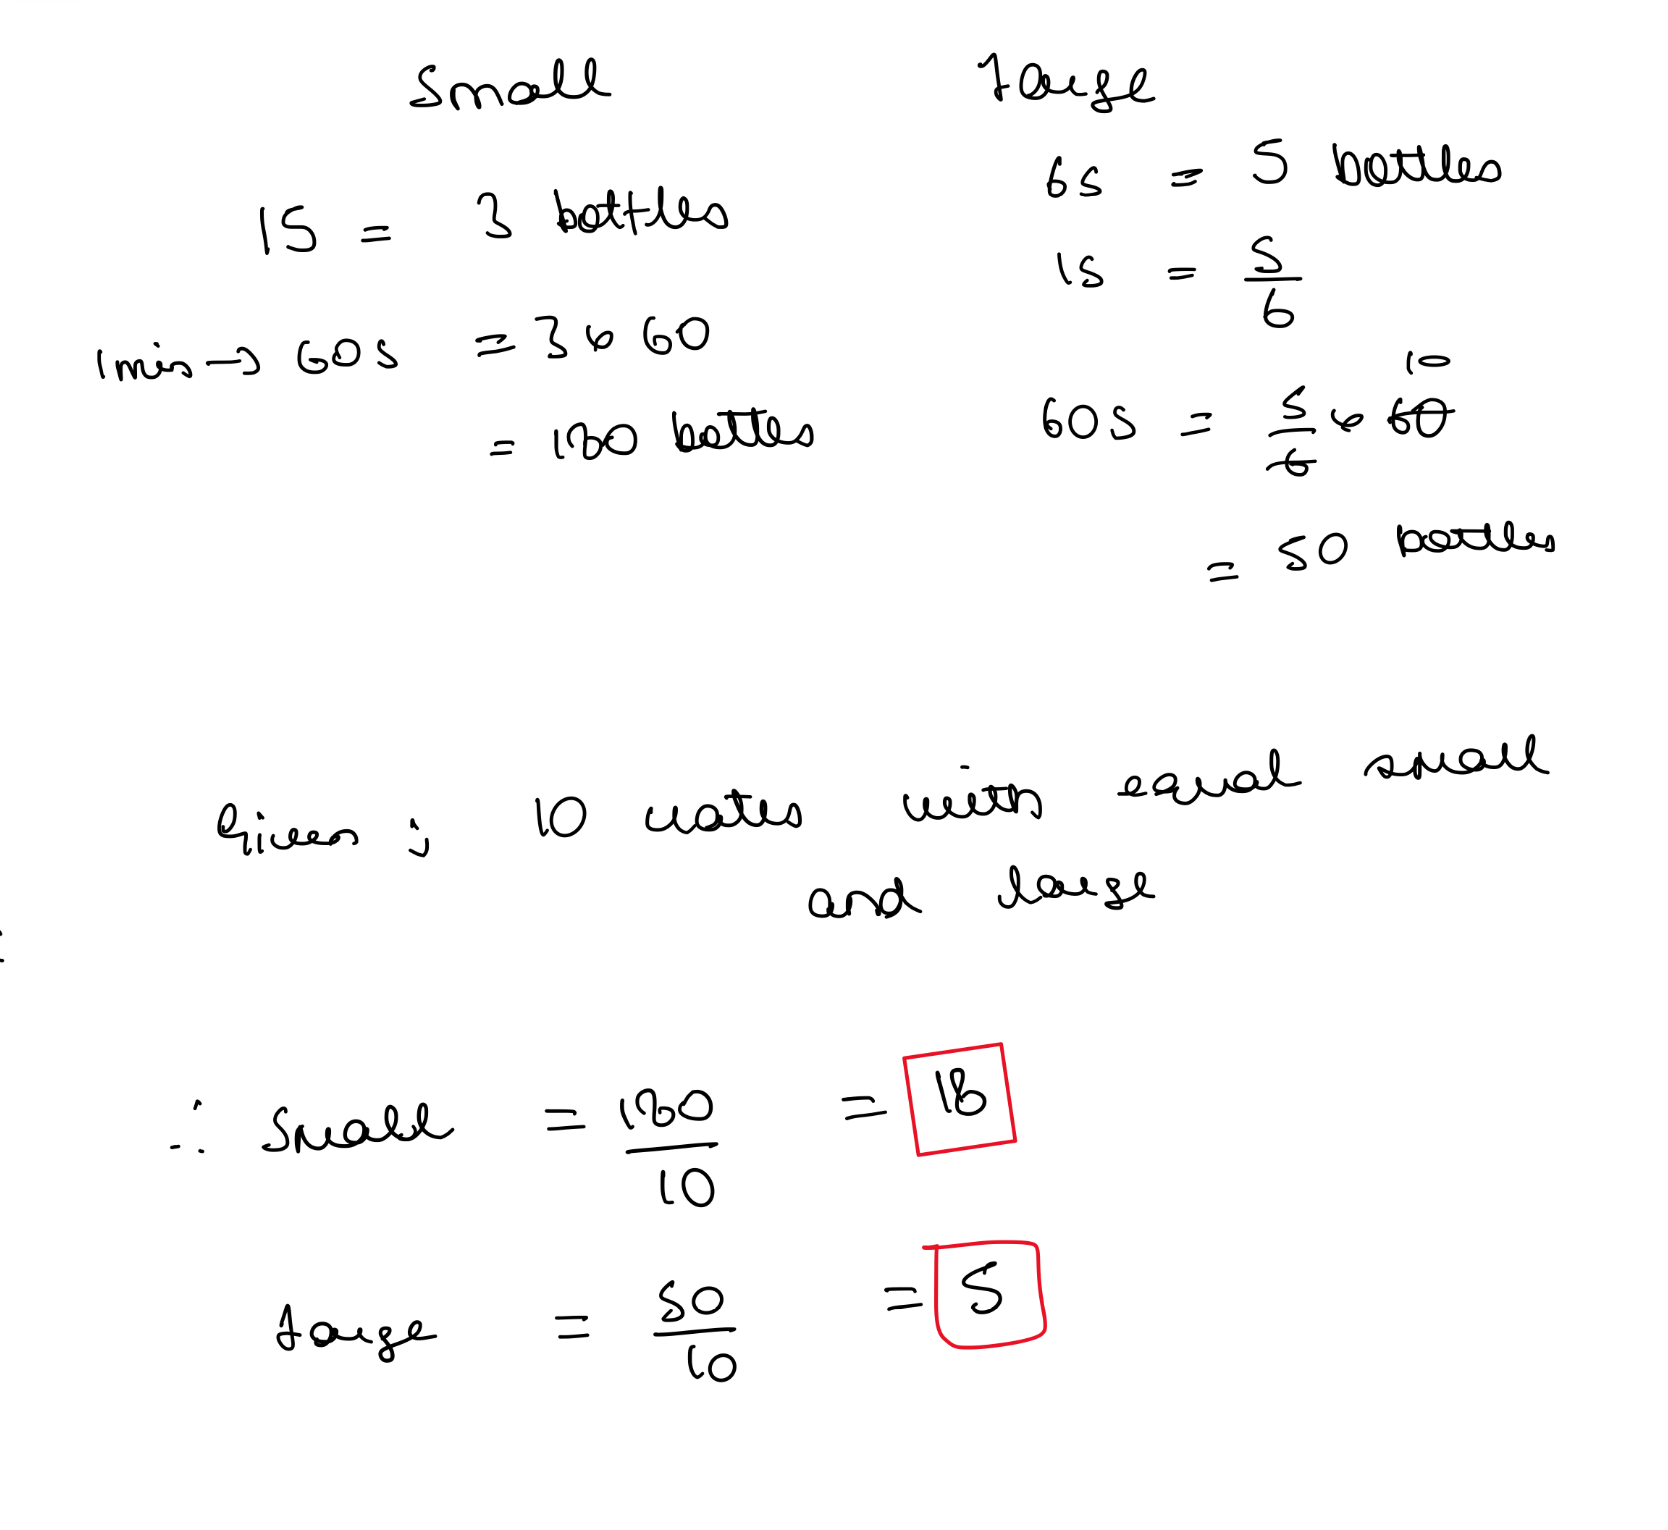 Small
1S = 3 bottles
1min → 60s = 3 × 60
= 180 bottles
Large
6s = 5 bottles
1s = 5/6
60s = 5/6 × 60 10
= 50 bottles
Given : 10 crates with equal small
and large
∴ Small = 180/10 = 18
Large = 50/10 = 5